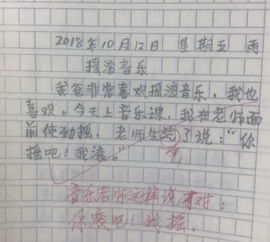 2018年10月12日 星期五 雨
摇滚音乐
我爸非常喜欢摇滚音乐，我也
喜欢。今天上音乐课，我在老师面
前使劲摇，老师生 了说：“你
摇吧！我滚。”
气
音乐老师应该这样说才对：
你滚吧！我摇。